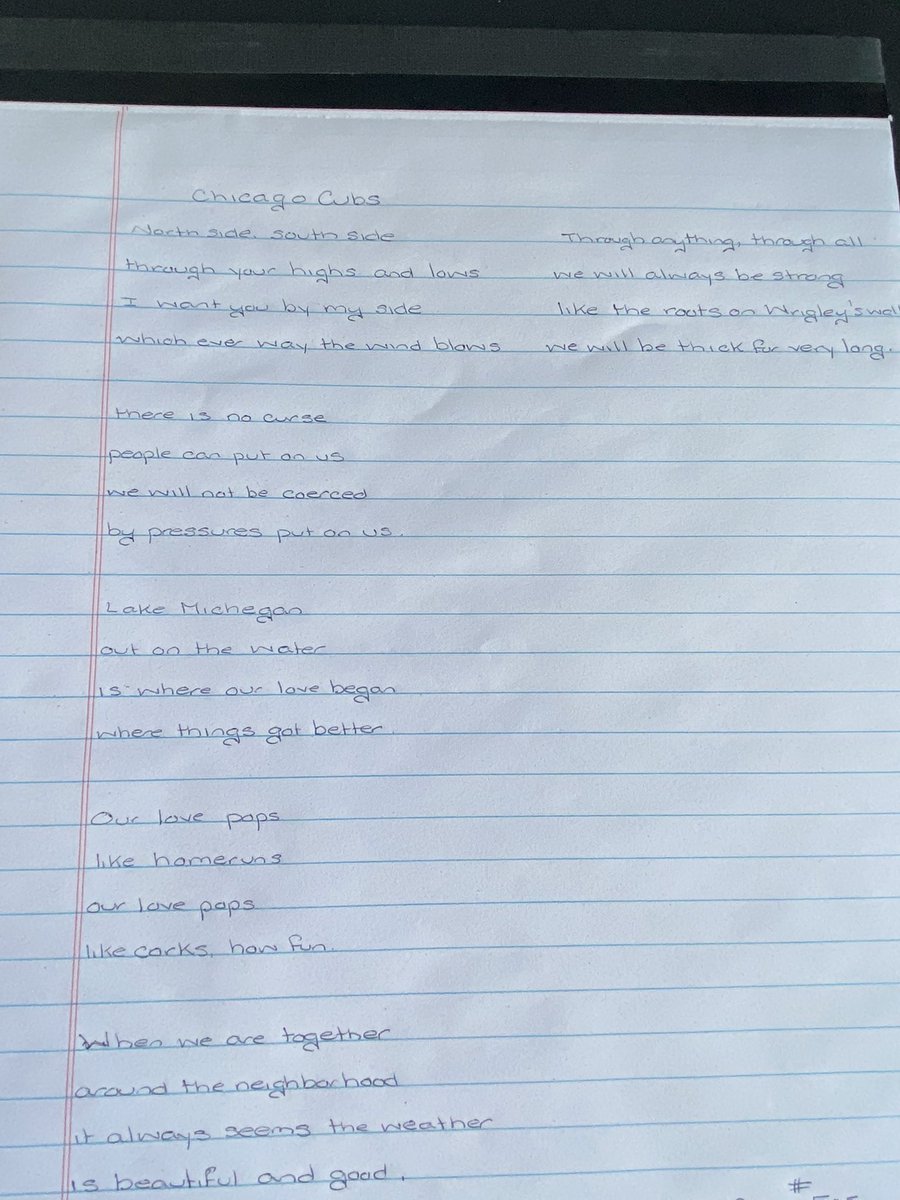 Chicago Cubs
North side, south side
through your highs and lows
I want you by my side
which ever way the wind blows
there is no curse
people can put on us
we will not be coerced
by pressures put on us.
Lake Michegan
out on the water
is where our love began
where things got better.
Our love pops
like homeruns
our love pops
like corks, how fun.
When we are together
around the neighborhood
it always seems the weather
is beautiful and good.
Through anything, through all
we will always be strong
like the roots on Wrigley's
we will be thick for very long.
#